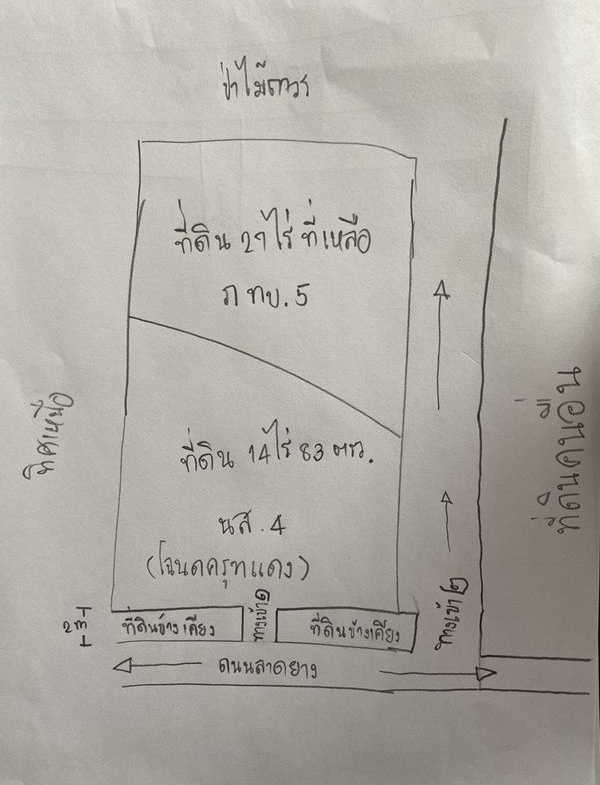 ป่าไม้ถาวร
ที่ดิน 27 ไร่ ที่เหลือ
ภ ทบ. 5
ทิศเหนือ
ที่ดินคนอื่น
ที่ดิน 14 ไร่ 83 ตรว.
นส. 4
(โฉนดครุฑแดง)
2 m
ที่ดินข้างเคียง
ทางเข้า ๑
ที่ดินข้างเคียง
ทางเข้า ๒
ถนนลาดยาง